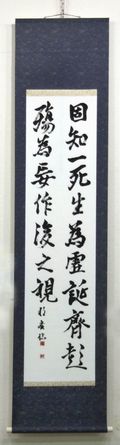 固知一死生為虛誕齊彭
殤為妄作後之視